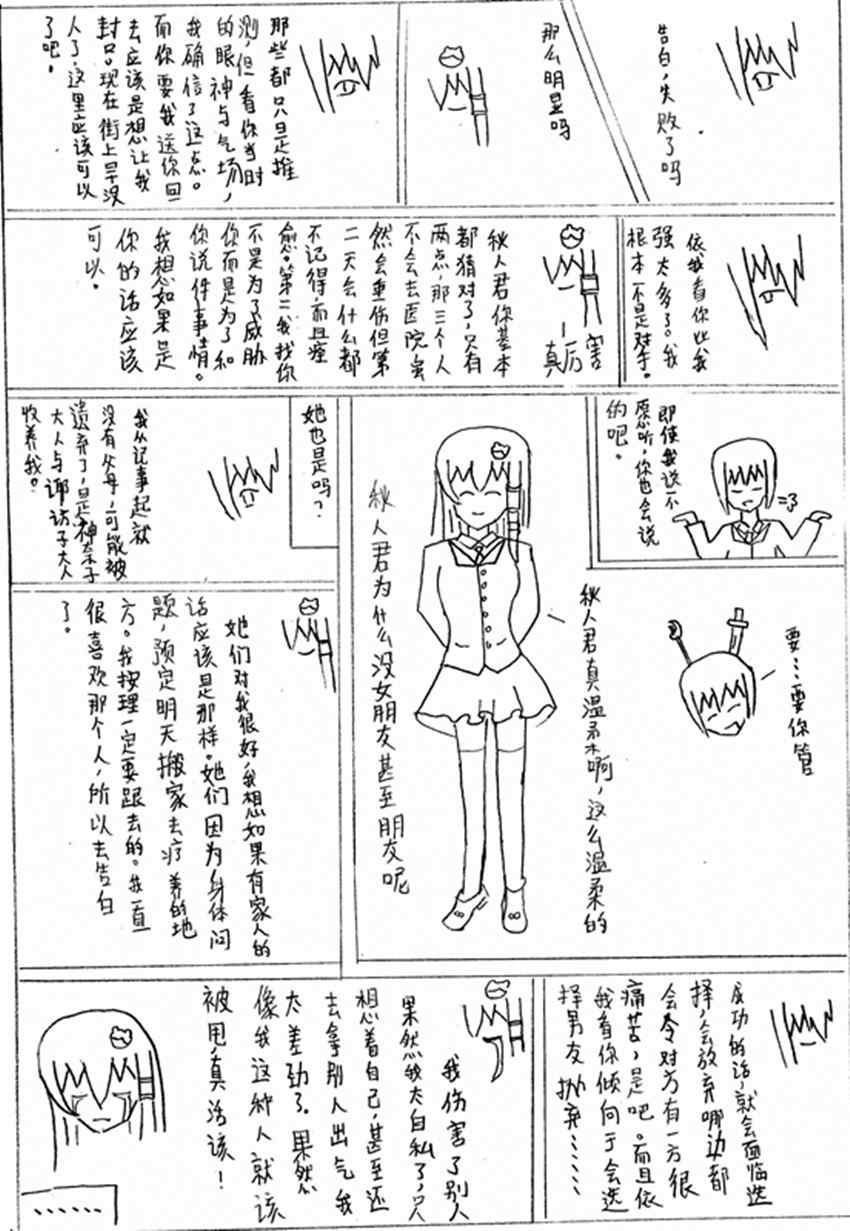 告白，失败了吗
那么明显吗
那些都只是推
测，但看你当时
的眼神与气场，
我确信了这点。
而你要我送你回
去应该是想让我
封口。现在街上早没
人了，这里应该可以
了吧。
依我看你比我
强太多了。我
根本不是对手。
真厉害
秋人君你基本
都猜对了，只有
两点，那三个人
不会去医院虽
然会重伤但第
二天会什么都
不记得，而且痊
愈。第二我找你
不是为了威胁
你而是为了和
你说件事情。
我想如果是
你的话应该
可以。
即使我说不
愿听，你也会说
的吧。
秋人君真温柔啊，这么温柔的
秋人君为什么没女朋友甚至朋友呢
要…要你管
她也是吗？
我从记事起就
没有父母，可能被
遗弃了，是神奈子
大人与诹访子大人
收养我。
她们对我很好，我想如果有家人的
话应该是那样。她们因为身体问
题，预定明天搬家去疗养的地
方。我按理一定要跟去的。我一直
很喜欢那个人，所以去告白
了。
成功的话，就会面临选
择，会放弃哪边都
会令对方有一方很
痛苦，是吧。而且依
我看你倾向于会选
择男友抛弃……
我伤害了别人
果然我太自私了，只
想着自己，甚至还
去拿别人出气我
太差劲了。果然
像我这种人就该
被甩真活该！
……